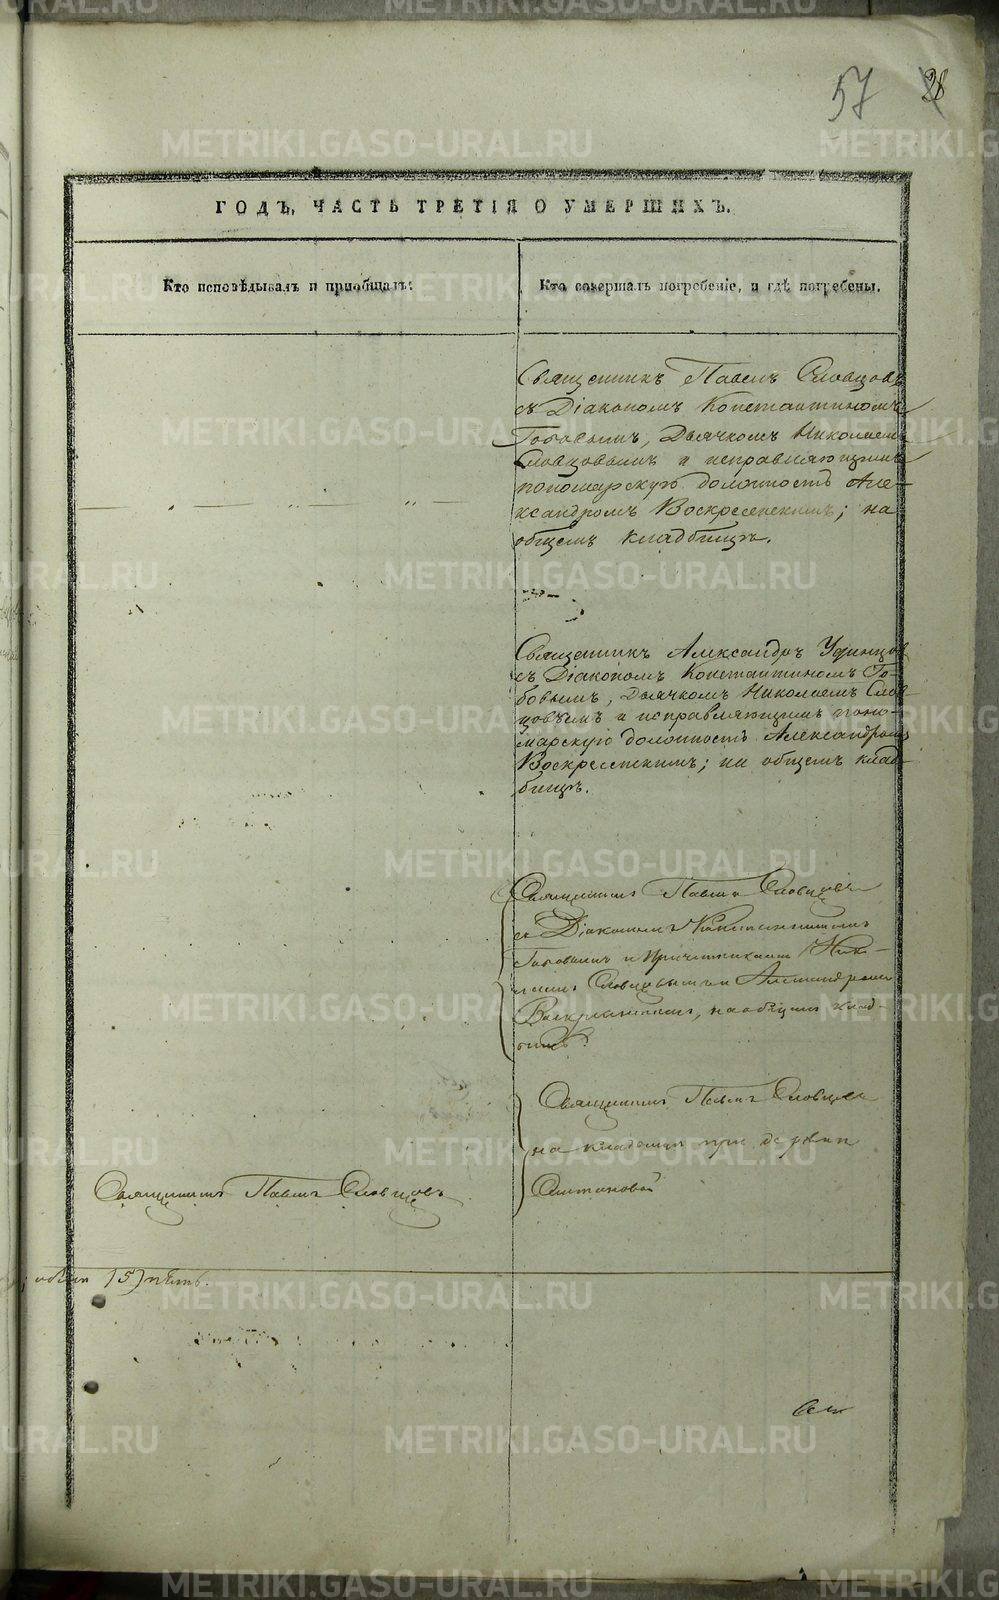 57
28
ГОДЪ, ЧАСТЬ ТРЕТІЯ О УМЕРШИХЪ.
Кто исповѣдывалъ и пріобщалъ:
Кто совершалъ погребеніе, и гдѣ погребены.
Священникъ Павелъ Словцовъ
съ Діакономъ Константиномъ
Гобовымъ, Дьячкомъ Николаемъ
Словцовымъ и исправляющимъ
пономарскую должность Але-
ксандромъ Воскресенскимъ; на
общемъ кладбищѣ.
Священникъ Александръ Удинцовъ
съ Діакономъ Константиномъ Го-
бовымъ, Дьячкомъ Николаемъ Слов-
цовымъ и исправляющимъ поно-
марскую должность Александромъ
Воскресенскимъ; на общемъ клад-
бищѣ.
Священникъ Павелъ Словцовъ
съ Діакономъ Константиномъ
Гобовымъ и Причетниками Нико-
лаемъ Словцовымъ и Александромъ
Воскресенскимъ, на общемъ клад-
бищѣ.
Священникъ Павелъ Словцовъ
на кладбищѣ при деревни
Священникъ Павелъ Словцовъ
15) пять.
METRIKI.GASO-URAL.RU